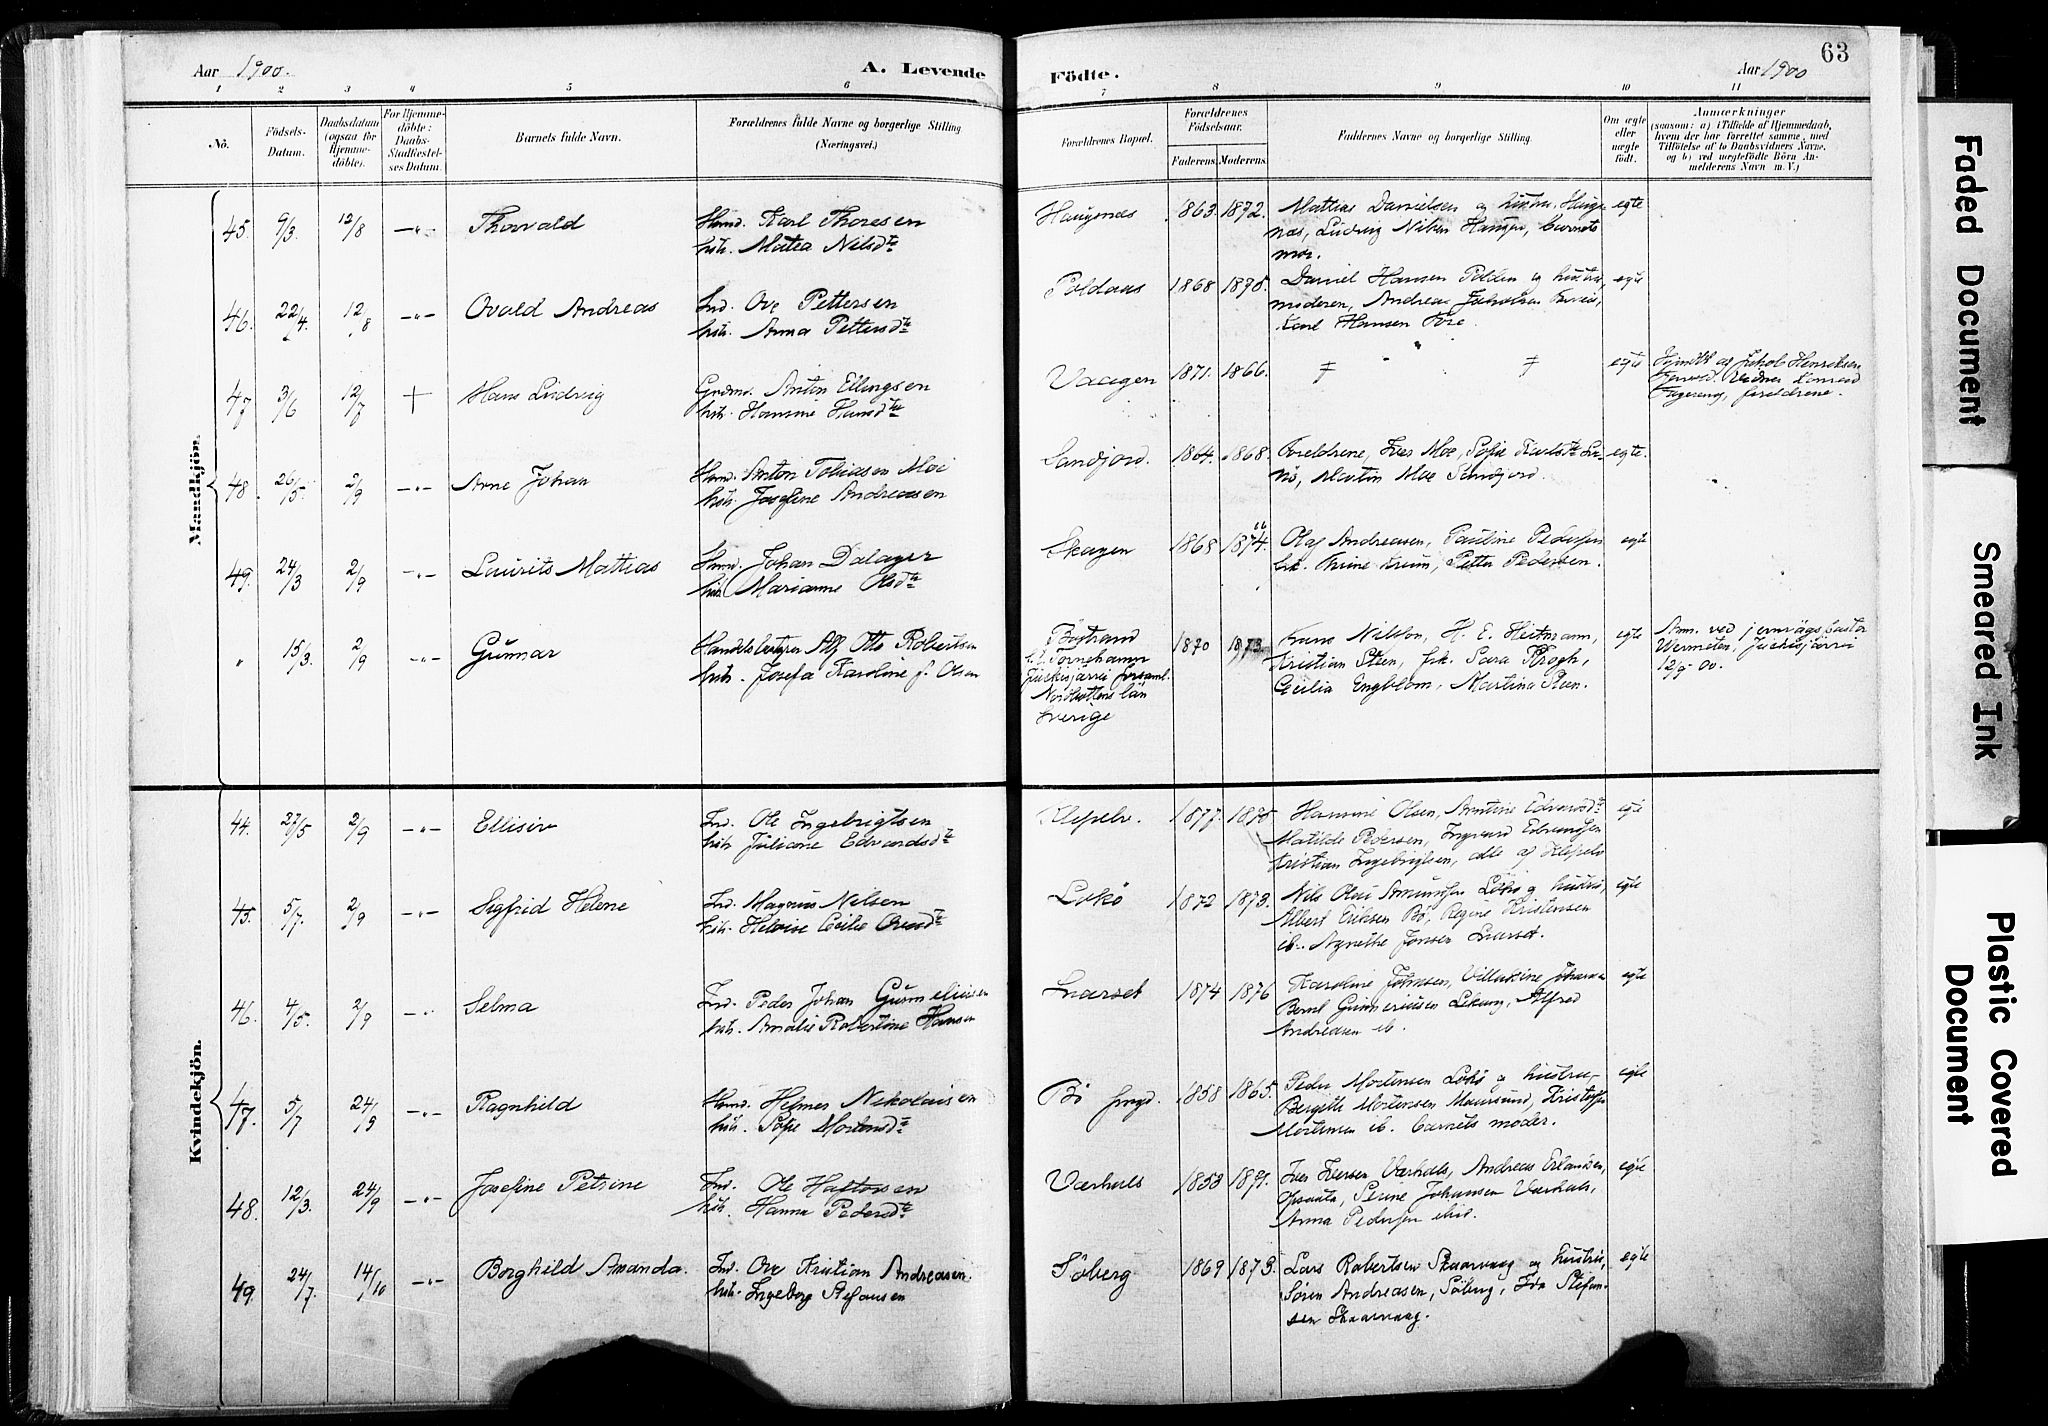 63
Aar 1900.
A. Levende
Födte.
Aar 1900
1 2 3 4 5 6 7 8 9 10 11
No.
Födsels-
Datum.
Daabsdatum
(ogsaa for
Hjemme-
döbte).
For Hjemme-
döbte:
Daabs-
Stadfæstel-
ses Datum.
Barnets fulde Navn.
Forældrenes fulde Navne og borgerlige Stilling
(Næringsvei.)
Forældrenes Bopæl.
Forældrenes
Födselsaar.
Faderens.
Moderens.
Faddernes Navne og borgerlige Stilling.
Om ægte
eller
uægte
födt.
Anmærkninger
(saasom: a) i Tilfælde af Hjemmedaab,
hvem der har forrettet samme, med
Tilföielse af to Daabsvidners Navne,
og b) ved uægtefödte Börn An-
melderens Navn m. V.)
Mandkjön.
45. 9/3. 12/8 —"— Thorvald
Karl Thoresen
hstr. Matea Nilsdtr
Haugenes 1863. 1872.
Mattias Danielsen og hustru, Hauge
næs, Ludvig Nilsen Haugen, barnets
mor.
egte
46. 22/4. 12/8 —"— Ovald Andreas
Ind. Ove Pettersen
hstr. Anna Pettersdtr
Poldaas 1868 1875.
Daniel Hansen Polden og hustru,
moderen, Andreas Jakobsen
Karl Hansen Tore.
egte
47. 3/6 12/7 + Hans Ludvig
Grdmd. Anton Ellingsen
hstr. Hansine Hansdtr
Vaagen 1871. 1866.
egte
Hjmdbt af Jakob Henriksen
Konrad
Fagereng, forældrene.
48. 26/5. 2/9 —"— Arne Johan
Anton Tobiasen Moe
hstr. Josefine Andreasen
Sandjord. 1864. 1868.
Foreldrene, Iver Moe, Sofie Karlsdtr
Martin Moe Sandjord.
egte.
49. 24/3 2/9 —"— Laurits Mattias
Johan Dalager
hstr. Marianne Olsdtr
Skagen 1868 1874. 66
Olaf Andreasen, Pauline Pedersen
frk. Trine Krum, Petter Pedersen.
egte
" 15/3. 2/9 —"— Gunnar
Handelsbetyren Alf Otto Robertsen
hstr. Josefa Karoline f. Olsen
Törnehamn
Juckasjärvi forsaml.
Norbottens län
Sverige
1870 1873.
Frans Nilsson, H. E. Heitmann,
Kristian Steen, frk. Sara Krogh,
Cecilia Engblom, Martina Steen.
egte
Anm. ved jernvägspastor
Wermeten, Juckasjärvi
12/9 00.
Kvindekjön.
44. 27/5 2/9 —"— Ellisiv
Ind. Ole Ingebrigtsen
hstr. Juliane Edvardsdtr
Klepelv. 1877. 1875
Hansine Olsen, Antine Edvardsdtr
Matilde Pedersen, Ingvard Edvardsen
Kristian Ingebrigtsen, alle af Klepelv
egte
45. 5/7. 2/9 —"— Sigfrid Helene
Ind. Magnus Nilsen
hstr. Heloise Cecilie Ovesdtr
Lokö 1872 1873.
Nils Olai Amundsen Lokö og hustru,
Albert Eriksen Bö, Regine Kristensen
ib. Agnethe Jonsen Snarset.
egte
46. 4/5. 2/9 —"— Selma
Ind. Peder Johan Gunneliusen
hstr. Amalie Robertine Hansen
Snarset 1874 1876
Karoline Johnsen, Villakine Johansen
Bernt Gunneriusen Lekang, Alfred
Andreasen ib.
egte
47. 5/7 24/9 —"— Ragnhild
Helmer Nikolaisen
hstr. Sofie Mortensdtr
Bö 1858 1865.
Peder Mortensen Lokö og hustru,
Bergitte Mortensen Mausund, Kristoffer
Mortensen ib. barnets moder.
egte
48. 12/3. 24/9 —"— Josefine Petrine
Ind. Ole Haftorsen
hstr. Hanna Pedersdtr
Værhals 1853 1871.
Iver Iversen Værhals, Andreas Erlandsen,
Serine Johansen Værhals,
Anna Pedersen
egte
49. 24/7. 14/10 —"— Borghild Amanda.
Ind. Ove Kristian Andreasen.
hstr. Ingeborg Stefansen
Söberg 1869 1873.
Lars Robertsen Skaarvaag og hustru,
Sören Andreasen, Söberg, Ida Stefan-
sen Skaarvaag.
egte
Faded Document
Smeared Ink
Plastic Covered
Document